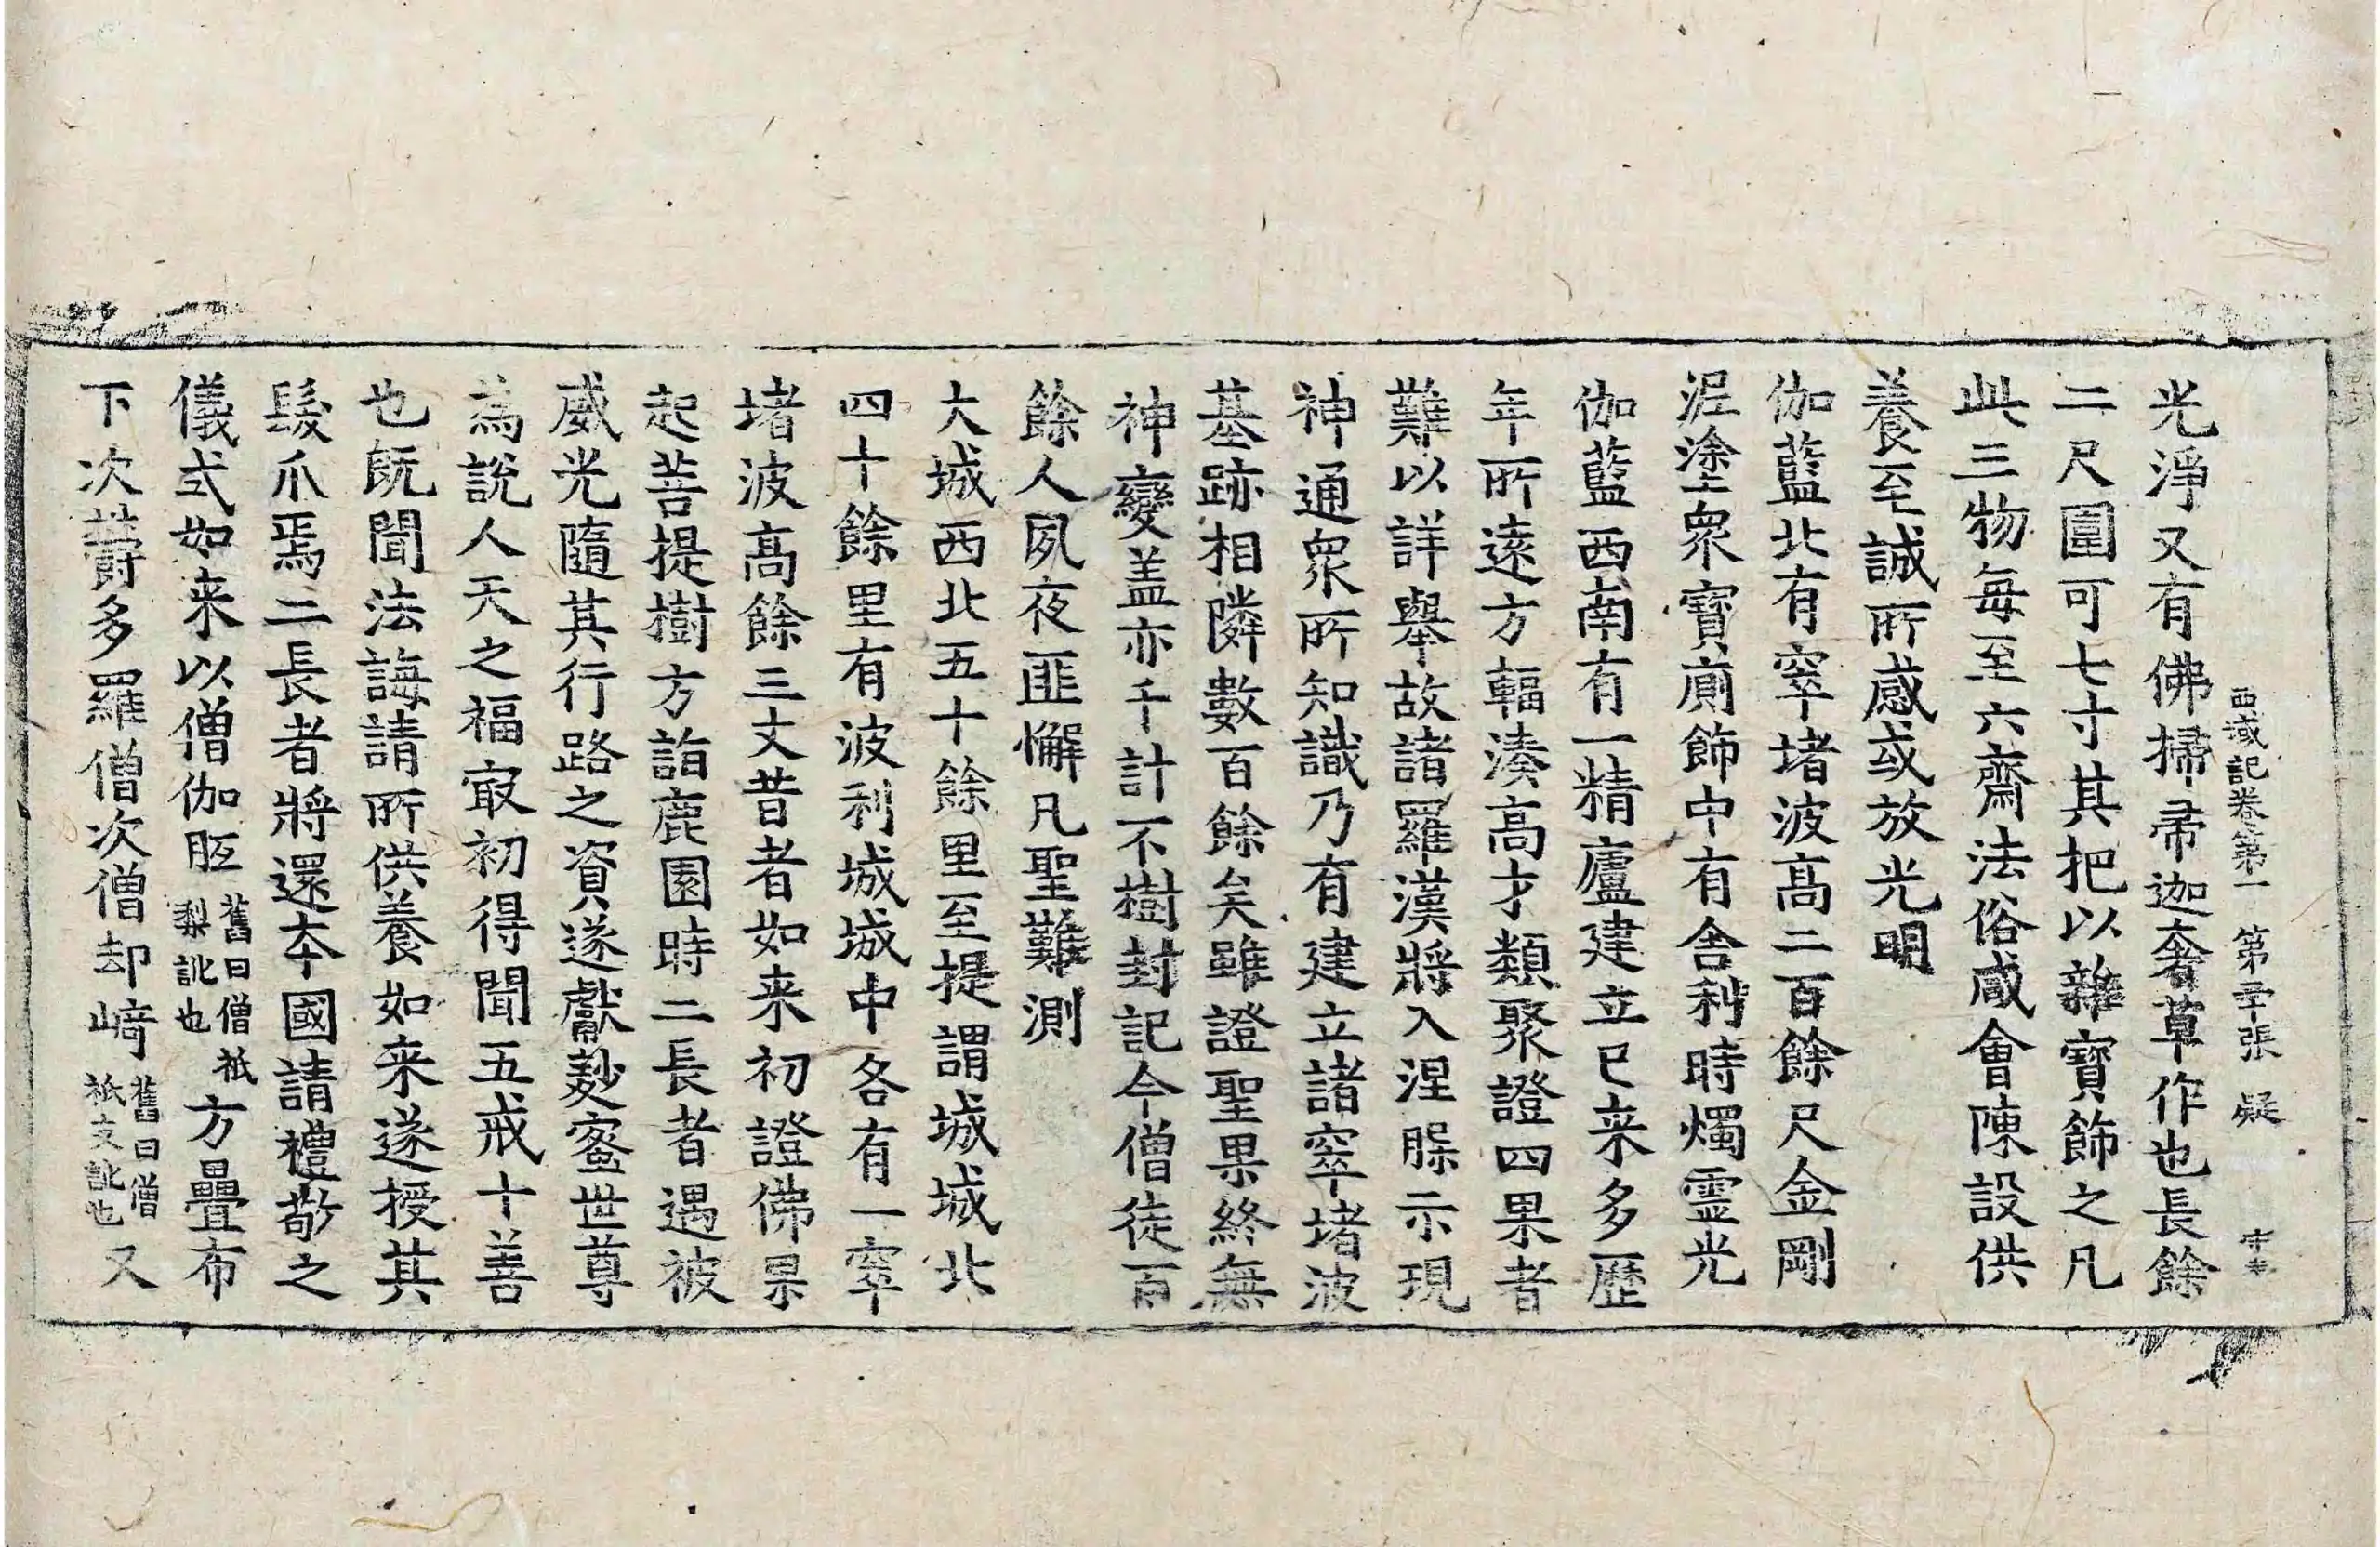 西域記卷第一 第二十張 疑
光淨又有佛掃帚迦奢草作也長餘
二尺圍可七寸其把以雜寶飾之凡
此三物每至六齋法俗咸會陳設供
養至誠所感或放光明
伽藍北有窣堵波高二百餘尺金剛
泥塗衆寶廁飾中有舍利時燭靈光
伽藍西南有一精廬建立已来多歷
年所遠方輻湊高才類聚證四果者
難以詳舉故諸羅漢將入涅槃示現
神通衆所知識乃有建立諸窣堵波
基跡相隣數百餘矣雖證聖果終無
神變盖亦千計不樹封記今僧徒百
餘人夙夜匪懈凡聖難測
大城西北五十餘里至提謂城城北
四十餘里有波利城城中各有一窣
堵波高餘三丈昔者如来初證佛果
起菩提樹方詣鹿園時二長者遇被
威光隨其行路之資遂獻麨蜜世尊
為說人天之福㝡初得聞五戒十善
也旣聞法誨請所供養如来遂授其
髮爪焉二長者將還本國請禮敬之
儀式如来以僧伽胝舊曰僧祇梨訛也方疊布
下次鬱多羅僧次僧却崎舊曰僧祇支訛也又